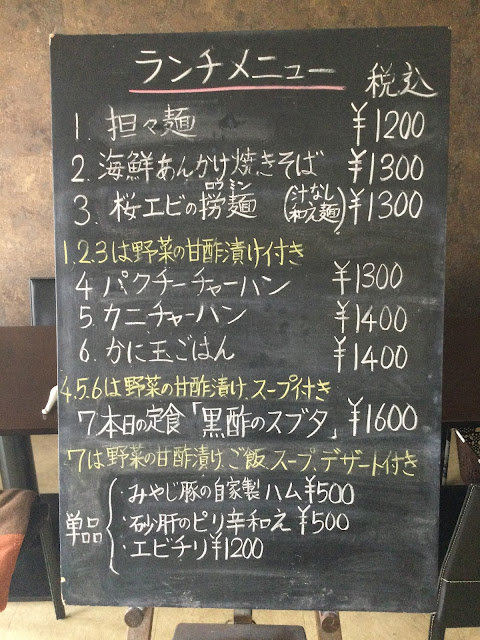 ランチメニュー 税込
1. 担々麺 ¥1200
2. 海鮮あんかけ焼きそば ¥1300
3. 桜エビの撈麺(ロウミン) (汁なし和え麺) ¥1300
1.2.3は野菜の甘酢漬け付き
4 パクチーチャーハン ¥1300
5. カニチャーハン ¥1400
6. かに玉ごはん ¥1400
4.5.6は野菜の甘酢漬け.スープ付き
7 本日の定食「黒酢のスブタ」 ¥1600
7は野菜の甘酢漬け.ご飯.スープ.デザート付き
単品
・みやじ豚の自家製ハム ¥500
・砂肝のピリ辛和え ¥500
・エビチリ ¥1200